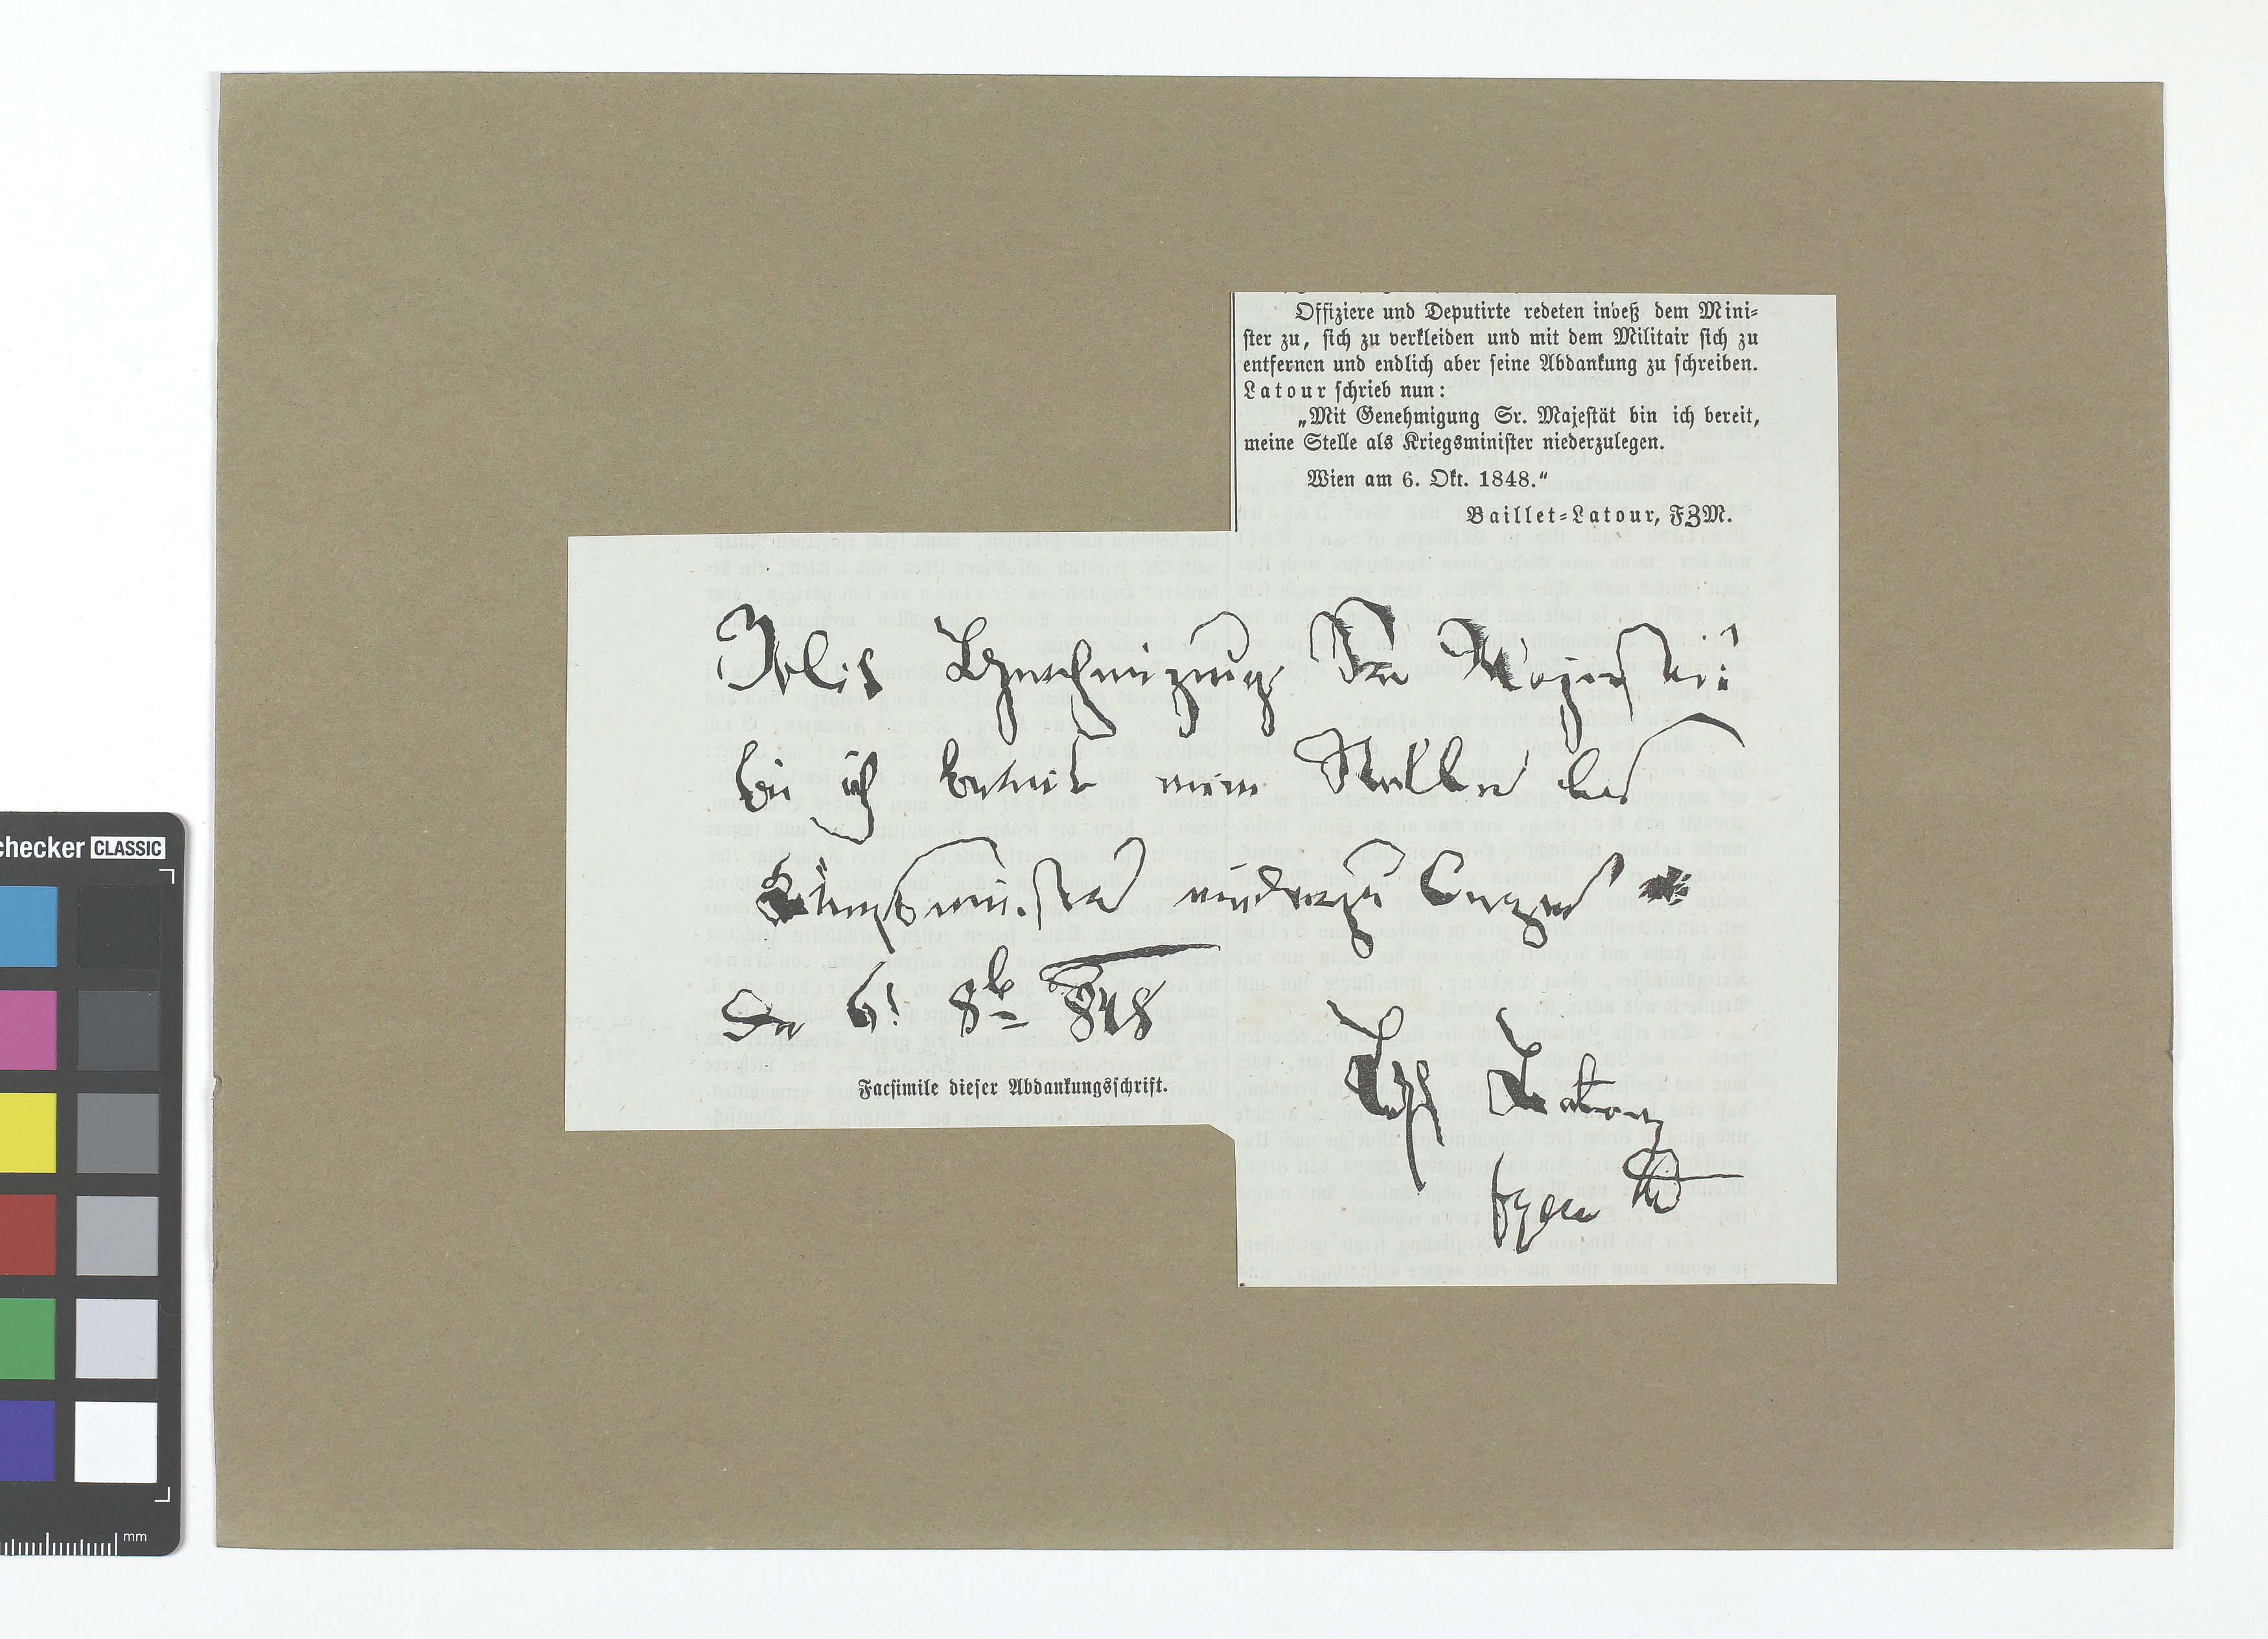 Offiziere und Deputirte redeten indeß dem Mini-
ster zu, sich zu verkleiden und mit dem Militair sich zu
entfernen und endlich aber seine Abdankung zu schreiben.
Latour schrieb nun:
„Mit Genehmigung Sr. Majestät bin ich bereit,
meine Stelle als Kriegsminister niederzulegen.
Wien am 6. Okt. 1848.“
Baillet-Latour, FZM.
Mit Genehmigung Sr Majestät
bin ich bereit meine Stelle als
Kriegsminister niederzulegen
6t 8b 848
Latour
FZM
Facsimile dieser Abdankungsschrift.
checker CLASSIC
mm